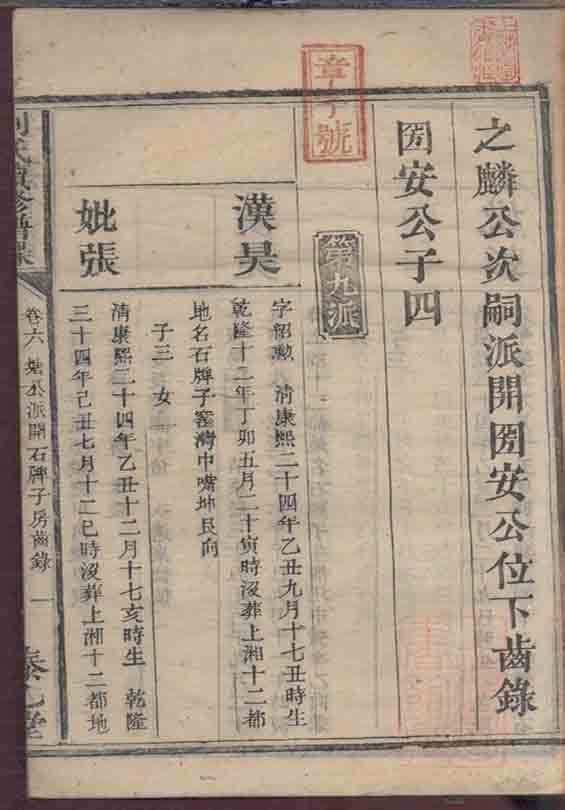 章字號
之麟公次嗣派開圀安公位下齒錄
圀安公子四
第九派
漢昊
字紹勲 清康熙二十四年乙丑九月十七丑時生
乾隆十二年丁卯五月二十寅時沒葬上湘十二都
地名石牌子窰灣中嘴坤艮向
子三 女一
妣張
清康熙二十四年乙丑十二月十七亥時生 乾隆
三十四年己丑七月十二巳時沒葬上湘十二都地
氏 修譜
卷六 公派開石牌子房齒錄 一
堂